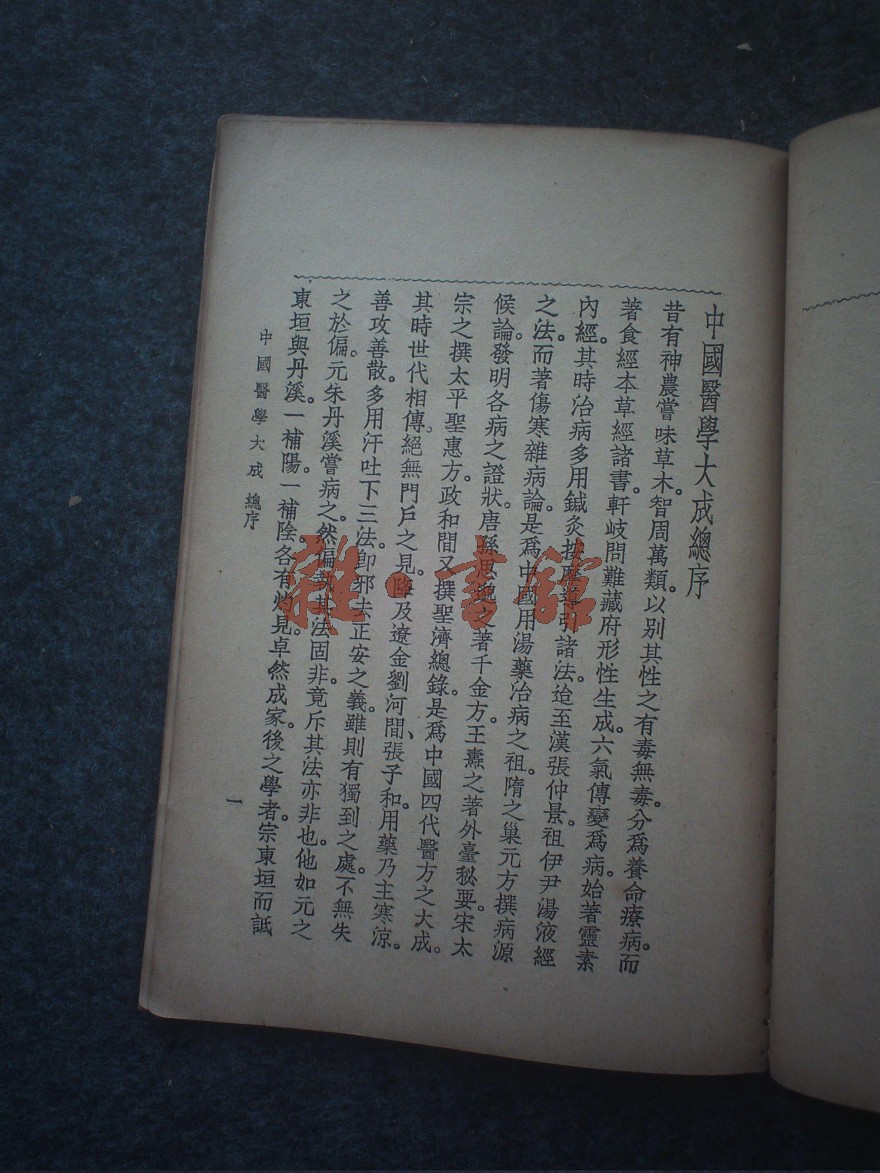 中國醫學大成總序
昔有神農嘗味草木。智周萬類。以別其性之有毒無毒。分爲養命療病。而
著食經本草經諸書。軒岐問難藏府形性生成。六氣傳變爲病。始著靈素
內經。其時治病多用鍼灸按摩導引諸法。迨至漢張仲景祖伊尹湯液經
之法。而著傷寒雜病論。是爲中國用湯藥治病之祖。隋之巢元方撰病源
候論。發明各病之證狀。唐孫思邈之著千金方。王燾之著外臺秘要。宋太
宗之撰太平聖惠方。政和間又撰聖濟總錄。是爲中國四代醫方之大成。
其時世代相傳。絕無門戶之見。降及遼金劉河間、張子和。用藥乃主寒涼。
善攻善散。多用汗吐下三法。卽邪去正安之義。雖則有獨到之處。不無失
之於偏。元朱丹溪嘗病之。然偏執其法固非。竟斥其法亦非也。他如元之
東垣與丹溪。一補陽。一補陰。各有灼見。卓然成家。後之學者。宗東垣而詆
中國醫學大成 總序
一
雜·書館